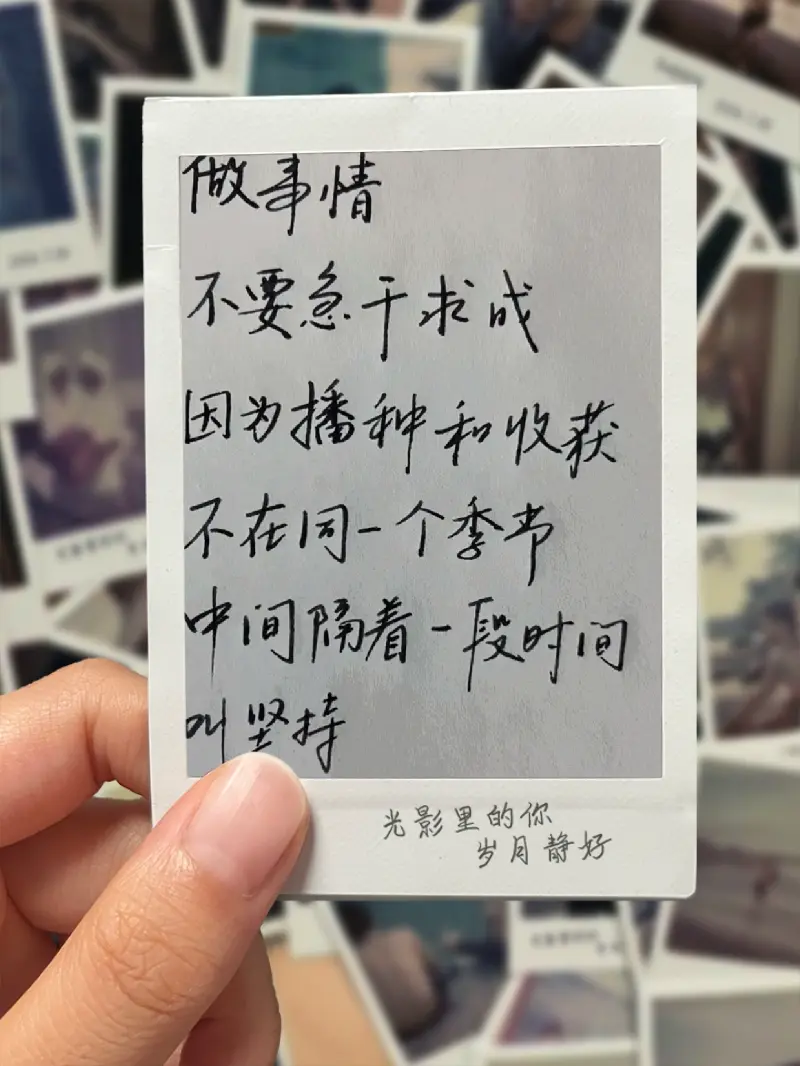 做事情
不要急于求成
因为播种和收获
不在同一个季节
中间隔着一段时间
叫坚持
光影里的你
岁月静好